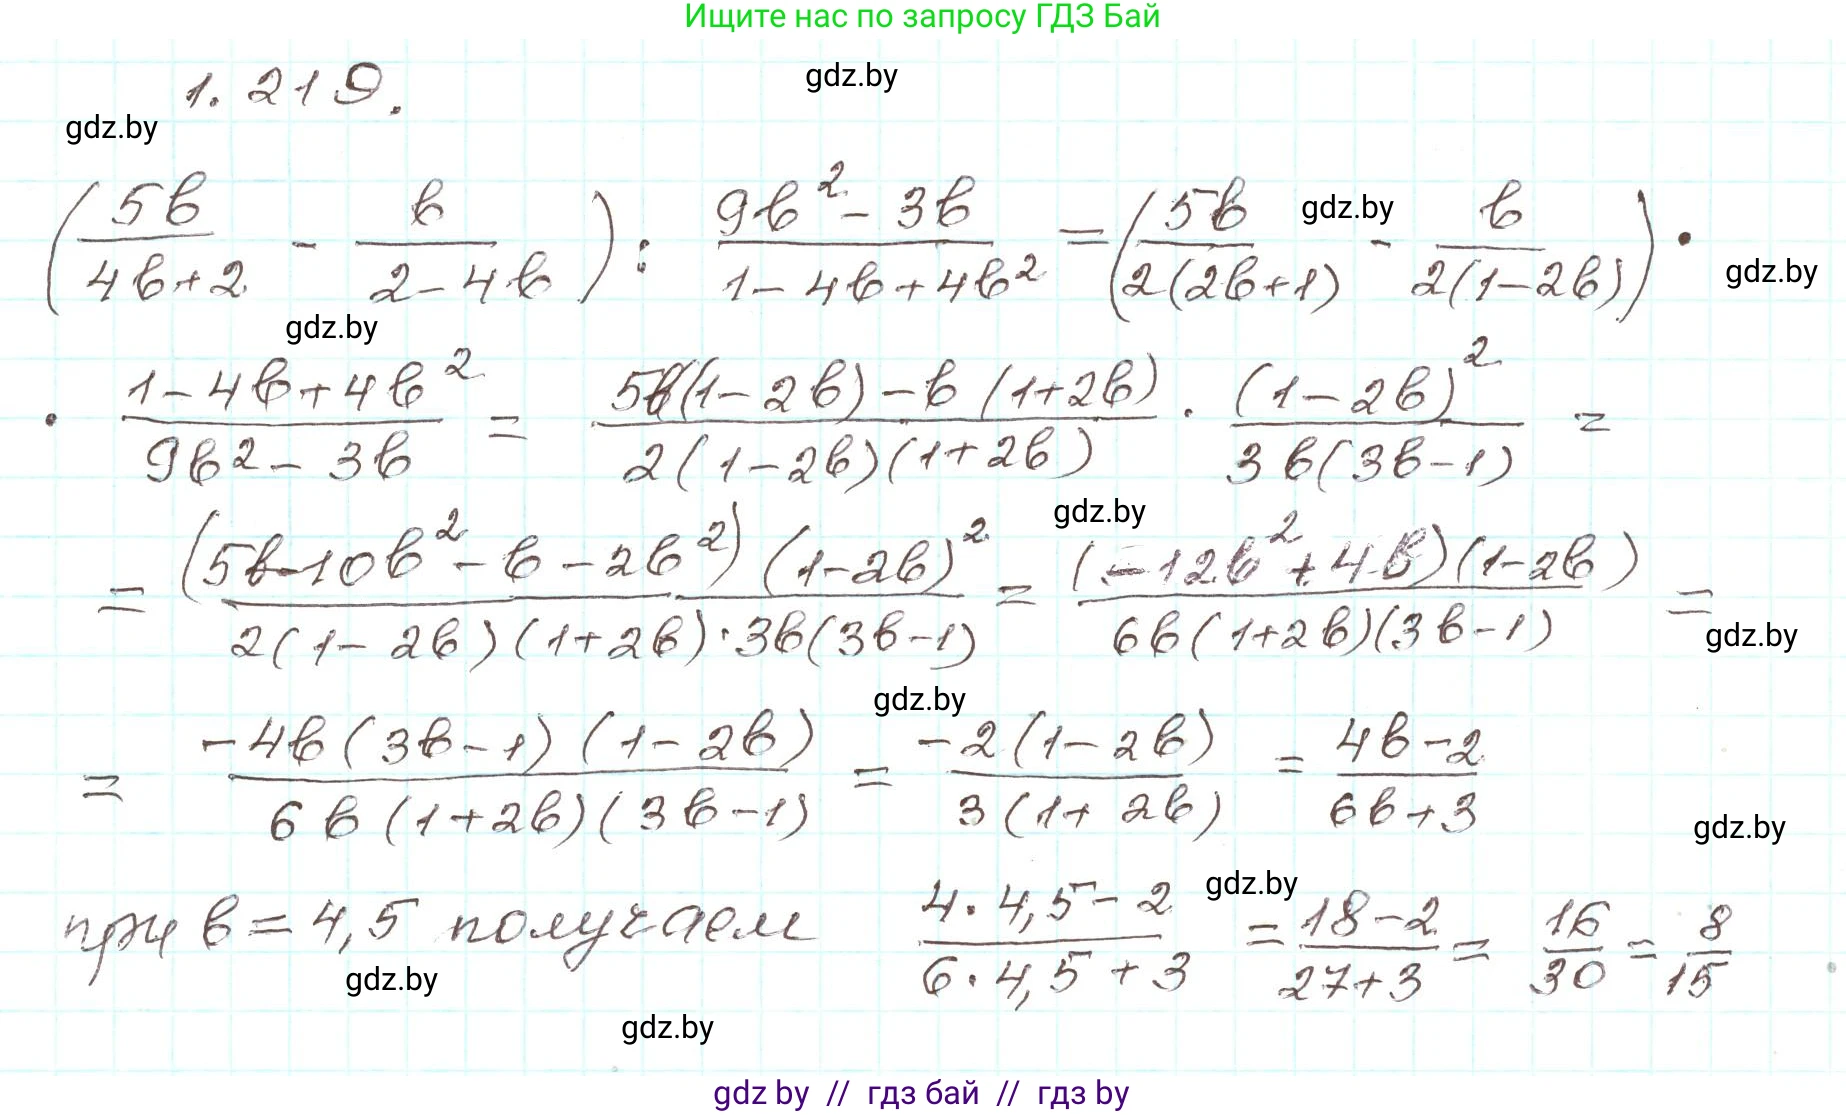 Ищите нас по запросу ГДЗ Бай
gdz.by
1.219.
gdz.by
(5b/(4b+2) - b/(2-4b)) : (9b² - 3b)/(1-4b+4b²) = (5b/(2(2b+1)) - b/(2(1-2b))) ·
gdz.by
gdz.by
gdz.by
· (1-4b+4b²)/(9b²-3b) = (5b(1-2b)-b(1+2b))/(2(1-2b)(1+2b)) · (1-2b)²/(3b(3b-1)) =
gdz.by
= ((5b-10b²-b-2b²)(1-2b)²)/(2(1-2b)(1+2b)·3b(3b-1)) = ((-12b²+4b)(1-2b))/(6b(1+2b)(3b-1)) =
gdz.by
gdz.by
= (-4b(3b-1)(1-2b))/(6b(1+2b)(3b-1)) = (-2(1-2b))/(3(1+2b)) = (4b-2)/(6b+3)
gdz.by
gdz.by
при b=4,5 получаем (4·4,5-2)/(6·4,5+3) = (18-2)/(27+3) = 16/30 = 8/15
gdz.by
gdz.by
gdz by // гдз бай // гдз by